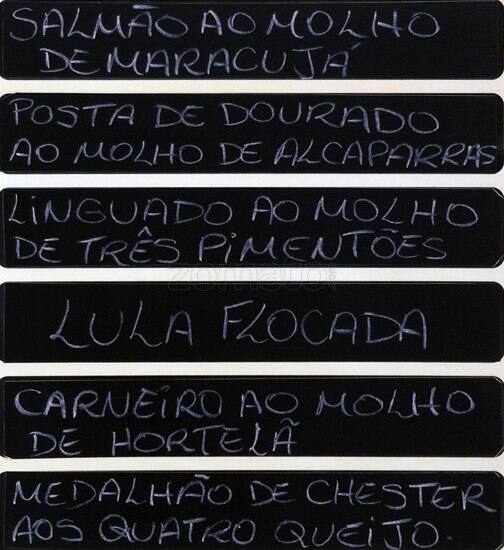 SALMÃO AO MOLHO
DE MARACUJÁ
POSTA DE DOURADO
AO MOLHO DE ALCAPARRAS
LINGUADO AO MOLHO
DE TRÊS PIMENTÕES
zomato
LULA FLOCADA
CARNEIRO AO MOLHO
DE HORTELÃ
MEDALHÃO DE CHESTER
AOS QUATRO QUEIJO.